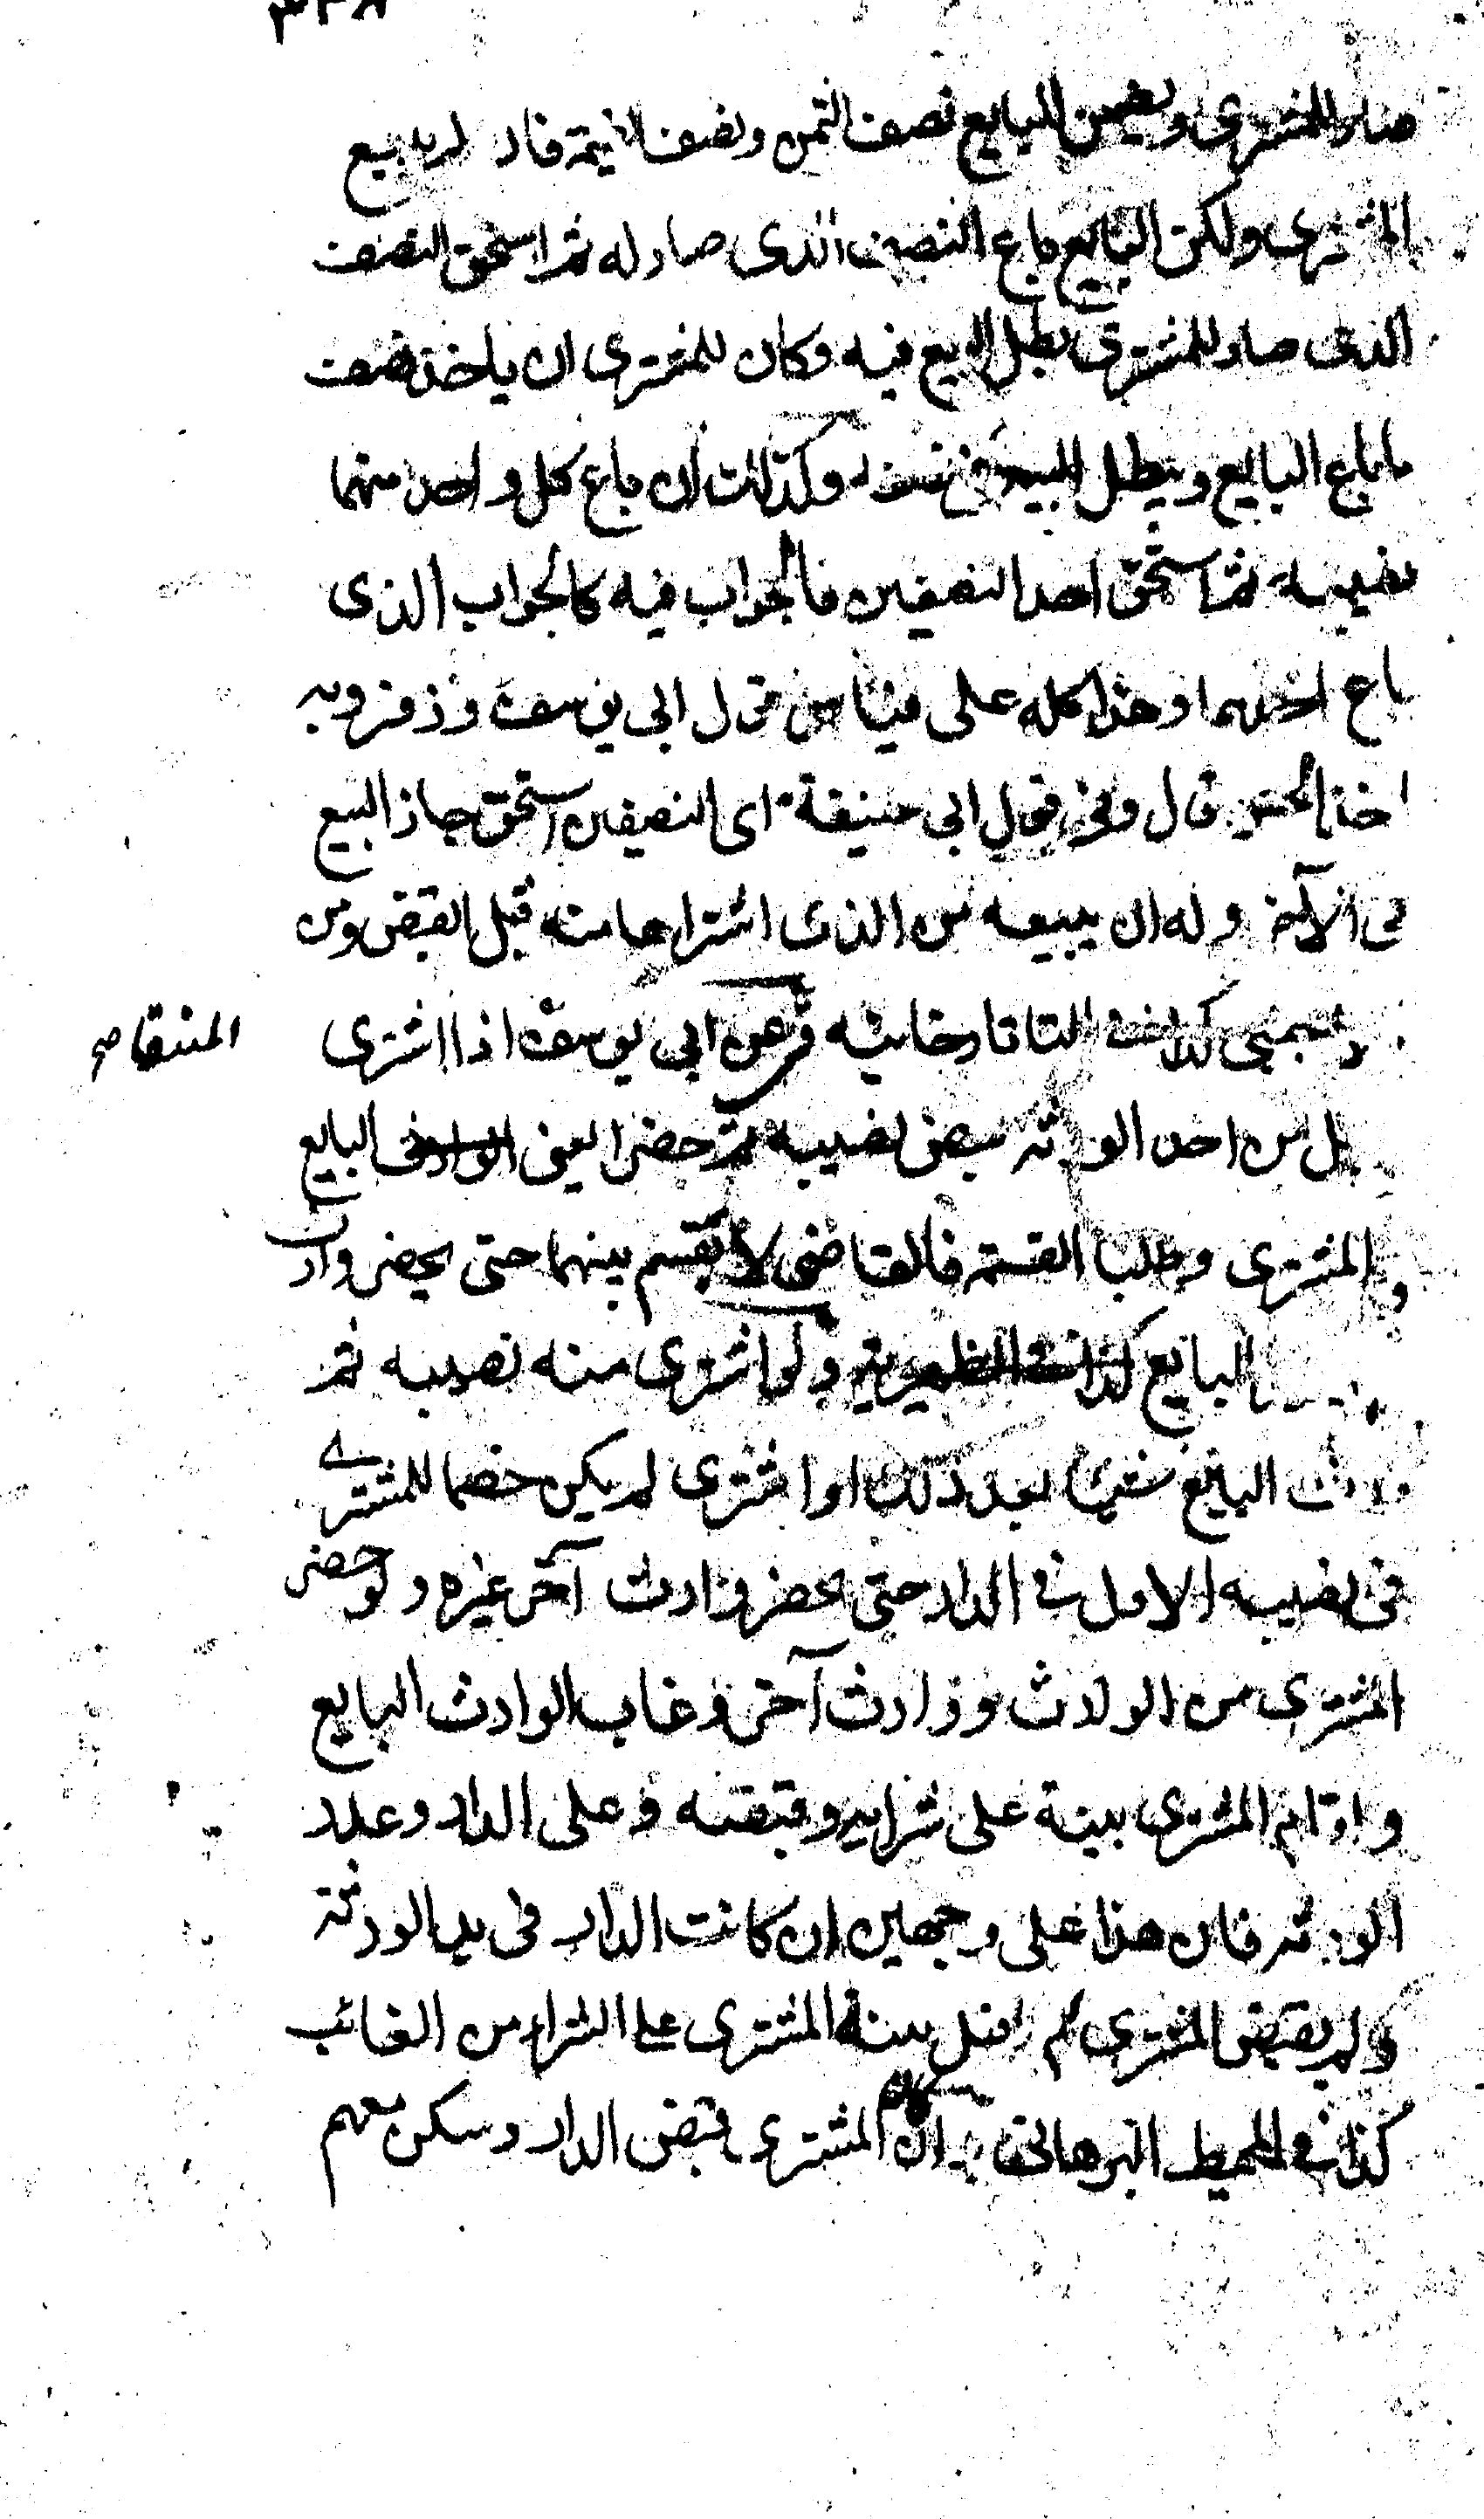 صار للمشترى ويضمن البايع نصف الثمن ونصف القيمة فان لم يبيع
المشترى ولكن البايع باع النصف الذى صار له ثم استحق النصف
الذى صار للمشترى بطل البيع فيه وكان للمشترى ان ياخذ نصف
ما باع البايع ويبطل البيع فى نصفه وكذلك ان باع كل واحد منهما
نصيبه ثم استحق احد النصفين فالجواب فيه كالجواب الذى
باع احدهما وهذا كله على قياس قول ابى يوسف وزفر وبه
اخذ الحسن قال وفى قول ابى حنيفة اى النصفين استحق جاز البيع
فى الآخر وله ان يبيعه من الذى اشتراها منه قبل القبض ومن
كذا فى التاتارخانيه فى عن ابى يوسف اذا اشترى
المنتقا صح
رجل من احد الورثه بعض نصيبه ثم حضرا يعنى الوارث البايع
والمشترى وطلبا القسمة فالقاضى لا يقسم بينهما حتى يحضر وارث
البايع كذا فى الظهيرية ولو اشترى منه نصيبه ثم
ورث البايع شيئا بعد ذلك او اشترى لم يكن خصما للمشترى
فى نصيبه الاول فى الدار حتى يحضر وارث آخر غيره ولو حضر
المشترى من الوارث ووارث آخر وغاب الوارث البايع
واقام المشترى بينة على شرايه وقبضه وعلى الدار وعدد
الورثه فان هذا على وجهين ان كانت الدار فى يد الورثة
ولم يقبض المشترى لم اقبل بينة المشترى على الشراء من الغائب
كذا فى المحيط البرهانى ان كان المشترى قبض الدار وسكن معهم